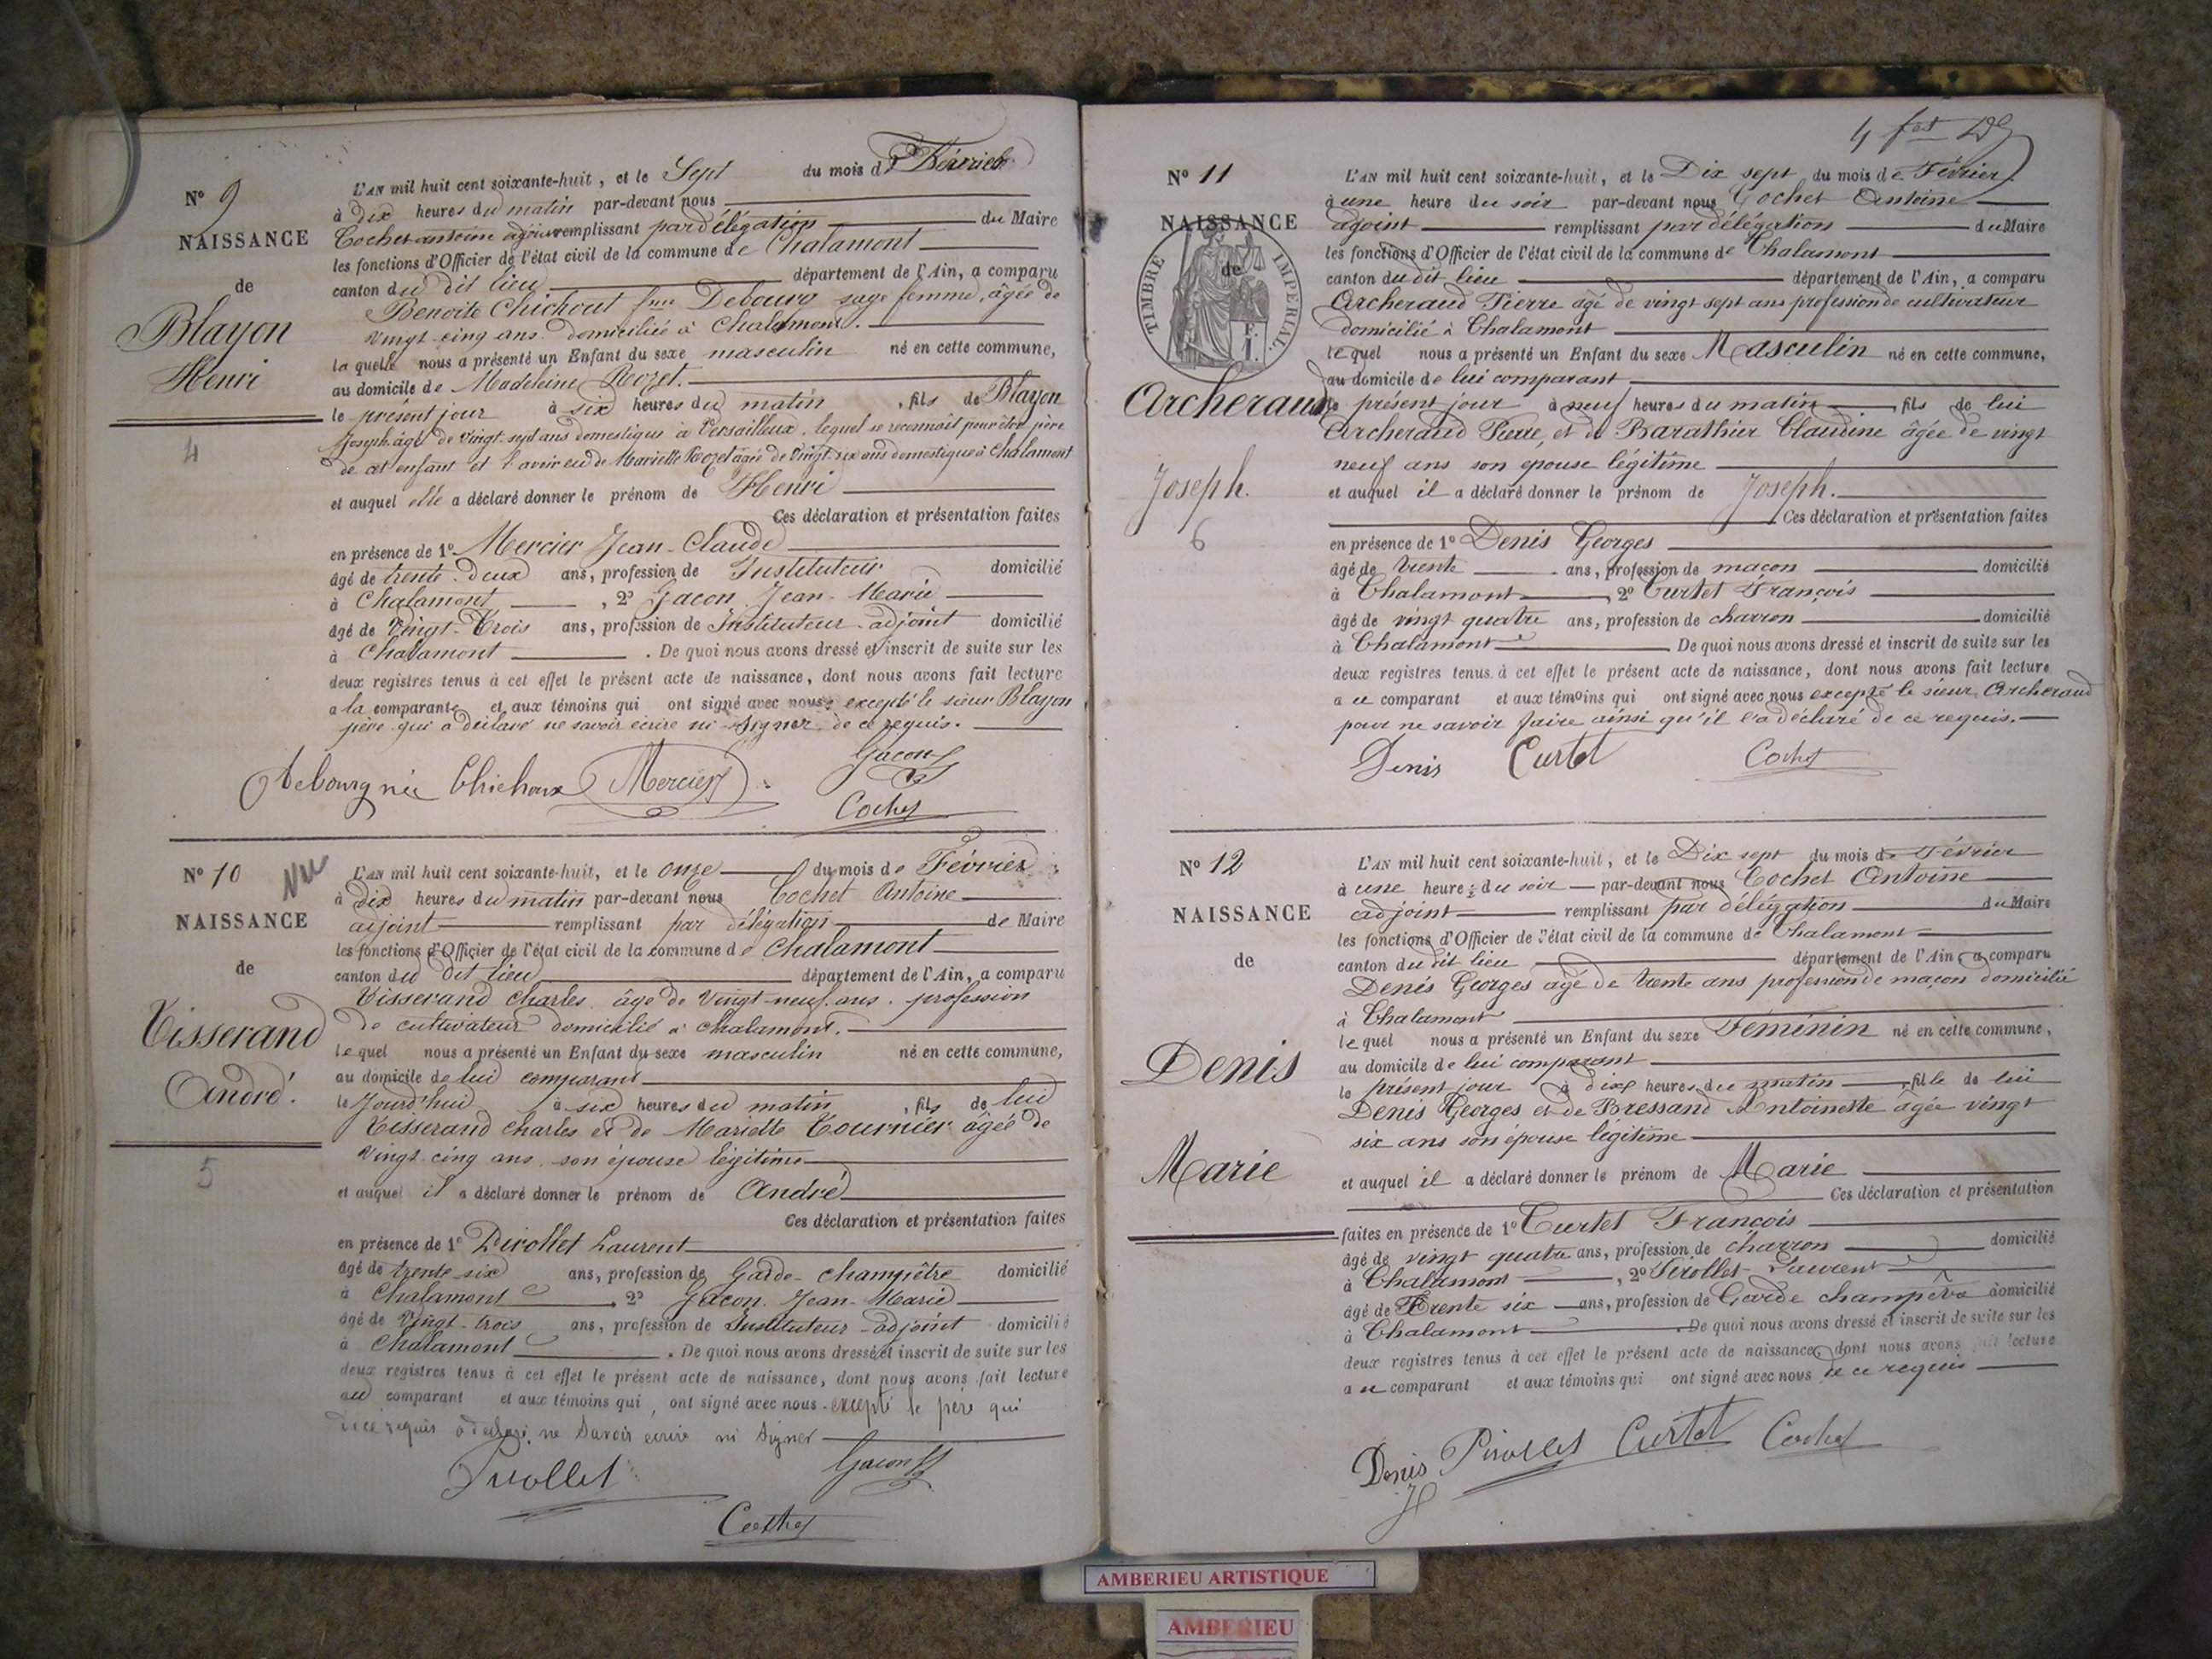 N° 9
NAISSANCE
de
Blayon
Henri
4
L'AN mil huit cent soixante-huit, et le Sept du mois de Février
à dix heures du matin par-devant nous
Cochet antoine adjoint remplissant par délégation du Maire
les fonctions d'Officier de l'état civil de la commune de Chalamont
canton du dit lieu département de l'Ain, a comparu
Benoite Chichout fme Debourg sage femme, âgée de
vingt-cinq ans domiciliée à Chalamont.
la quelle nous a présenté un Enfant du sexe masculin né en cette commune,
au domicile de Madeleine Rozet.
le présent jour à six heures du matin, fils de Blayon
Joseph âgé de vingt-sept ans domestique à Versailleux, lequel se reconnoît pour être père
de cet enfant et l'avoir eu de Mariette Rozet âgée de vingt-six ans domestique à Chalamont
et auquel elle a déclaré donner le prénom de Henri
Ces déclaration et présentation faites
en présence de 1° Mercier Jean-Claude
âgé de trente-deux ans, profession de Instituteur domicilié
à Chalamont, 2° Gacon Jean-Marie
âgé de vingt-trois ans, profession de Instituteur-adjoint domicilié
à Chalamont. De quoi nous avons dressé et inscrit de suite sur les
deux registres tenus à cet effet le présent acte de naissance, dont nous avons fait lecture
a la comparante et aux témoins qui ont signé avec nous excepté le sieur Blayon
père qui a déclaré ne savoir écrire ni signer de ce requis.
Debourg née Chichoux Mercier Gacon
Cochet
N° 10
Vu
NAISSANCE
de
Tisserand
André.
5
L'AN mil huit cent soixante-huit, et le onze du mois de Février
à dix heures du matin par-devant nous Cochet Antoine
adjoint remplissant par délégation de Maire
les fonctions d'Officier de l'état civil de la commune de Chalamont
canton du dit lieu département de l'Ain, a comparu
Tisserand Charles âgé de vingt-neuf ans. profession
de cultivateur domicilié à Chalamont.
le quel nous a présenté un Enfant du sexe masculin né en cette commune,
au domicile de lui comparant
le Jourd'hui à six heures du matin, fils de lui
Tisserand Charles et de Mariette Tournier âgée de
vingt-cinq ans. son épouse légitime
et auquel il a déclaré donner le prénom de André
Ces déclaration et présentation faites
en présence de 1° Pirollet Laurent
âgé de trente six ans, profession de Garde-champêtre domicilié
à Chalamont, 2° Gacon Jean-Marie
âgé de vingt-trois ans, profession de Instituteur-adjoint domicilié
à Chalamont. De quoi nous avons dressé et inscrit de suite sur les
deux registres tenus à cet effet le présent acte de naissance, dont nous avons fait lecture
au comparant et aux témoins qui, ont signé avec nous. excepté le père qui
de ce requis a déclaré ne savoir écrire ni signer
Pirollet Gacon
Cochet
4 fet
N° 11
NAISSANCE
de
TIMBRE IMPÉRIAL
Archeraud
Joseph.
6
L'AN mil huit cent soixante-huit, et le Dix sept du mois de Février
à une heure du soir par-devant nous Cochet Antoine
adjoint remplissant par délégation du Maire
les fonctions d'Officier de l'état civil de la commune de Chalamont
canton du dit lieu département de l'Ain, a comparu
Archeraud Pierre âgé de vingt sept ans profession de cultivateur
domicilié à Chalamont
le quel nous a présenté un Enfant du sexe Masculin né en cette commune,
au domicile de lui comparant
le présent jour à neuf heures du matin, fils de lui
Archeraud Pierre et de Barathier Claudine âgée de vingt
neuf ans son épouse légitime
et auquel il a déclaré donner le prénom de Joseph.
Ces déclaration et présentation faites
en présence de 1° Denis Georges
âgé de trente ans, profession de maçon domicilié
à Chalamont, 2° Curtet François
âgé de vingt quatre ans, profession de charron domicilié
à Chalamont De quoi nous avons dressé et inscrit de suite sur les
deux registres tenus à cet effet le présent acte de naissance, dont nous avons fait lecture
a u comparant et aux témoins qui ont signé avec nous excepté le sieur Archeraud
pour ne savoir faire ainsi qu'il l'a déclaré de ce requis.
Denis Curtet Cochet
N° 12
NAISSANCE
de
Denis
Marie
L'AN mil huit cent soixante-huit, et le Dix sept du mois de Février
à une heure du soir par-devant nous Cochet Antoine
adjoint remplissant par délégation du Maire
les fonctions d'Officier de l'état civil de la commune de Chalamont
canton du dit lieu département de l'Ain, a comparu
Denis Georges âgé de trente ans profession de maçon domicilié
à Chalamont
le quel nous a présenté un Enfant du sexe Féminin né en cette commune,
au domicile de lui comparant
le présent jour à dix heures du matin, fille de lui
Denis Georges et de Bressand Antoinette âgée vingt
six ans son épouse légitime
et auquel il a déclaré donner le prénom de Marie
Ces déclaration et présentation
faites en présence de 1° Curtet François
âgé de vingt quatre ans, profession de charron domicilié
à Chalamont, 2° Pirollet Laurent
âgé de Trente six ans, profession de Garde champêtre domicilié
à Chalamont. De quoi nous avons dressé et inscrit de suite sur les
deux registres tenus à cet effet le présent acte de naissance, dont nous avons fait lecture
a u comparant et aux témoins qui ont signé avec nous de ce requis
Denis Pirollet Curtet Cochet
AMBERIEU ARTISTIQUE
AMBERIEU